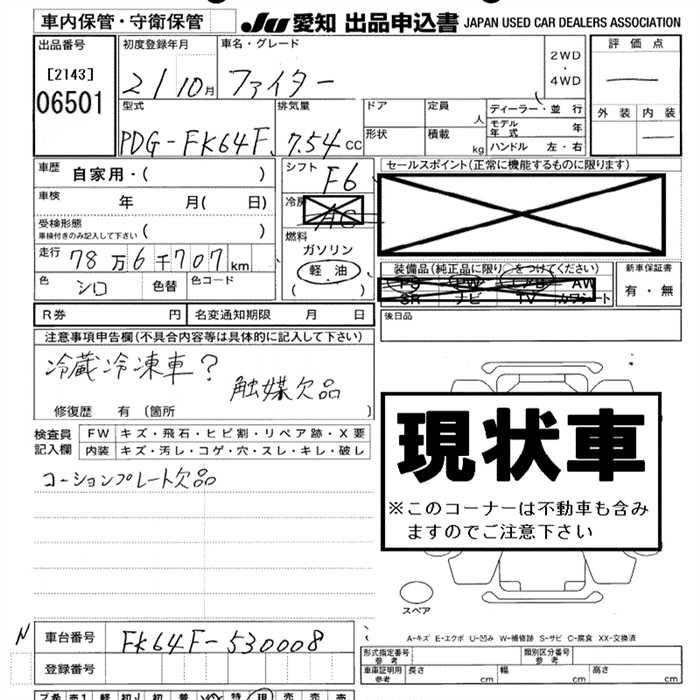 車内保管・守衛保管
JU 愛知 出品申込書 JAPAN USED CAR DEALERS ASSOCIATION
出品番号
[2143]
06501
初度登録年月
21/10月
車名・グレード
ファイター
2WD
・
4WD
評価点
外装 内装
型式
PDG-FK64F
排気量
7.54cc
ドア
定員 人
形状
積載 kg
ディーラー・並行
モデル年式 年
ハンドル 左・右
車歴
自家用・( )
車検 年 月( 日)
受検形態
車検付きのみ記入して下さい ( )
走行 78万6千707km
色 シロ 色替 色コード
シフト F6
冷房 AC
燃料
ガソリン
軽・油
セールスポイント(正常に機能するものに限ります)
装備品(純正品に限り○をつけてください)
PS PW エアB AW
SR ナビ TV カワシート
新車保証書
有・無
後日品
R券 円 名変通知期限 月 日
注意事項申告欄(不具合内容等は具体的に記入して下さい)
冷蔵冷凍車?
触媒欠品
修復歴 有〔箇所 〕
検査員記入欄
FW キズ・飛石・ヒビ割・リペア跡・X要
内装 キズ・汚レ・コゲ・穴・スレ・キレ・破レ
コーションプレート欠品
現状車
※このコーナーは不動車も含み
ますのでご注意下さい
スペア
A-キズ E-エクボ U-凹み W-補修跡 S-サビ C-腐食 XX-交換済
N
車台番号 FK64F-530008
登録番号
型式指定番号 参考
類別区分番号 参考
車庫証明用 参考 長さ cm 幅 cm 高さ cm